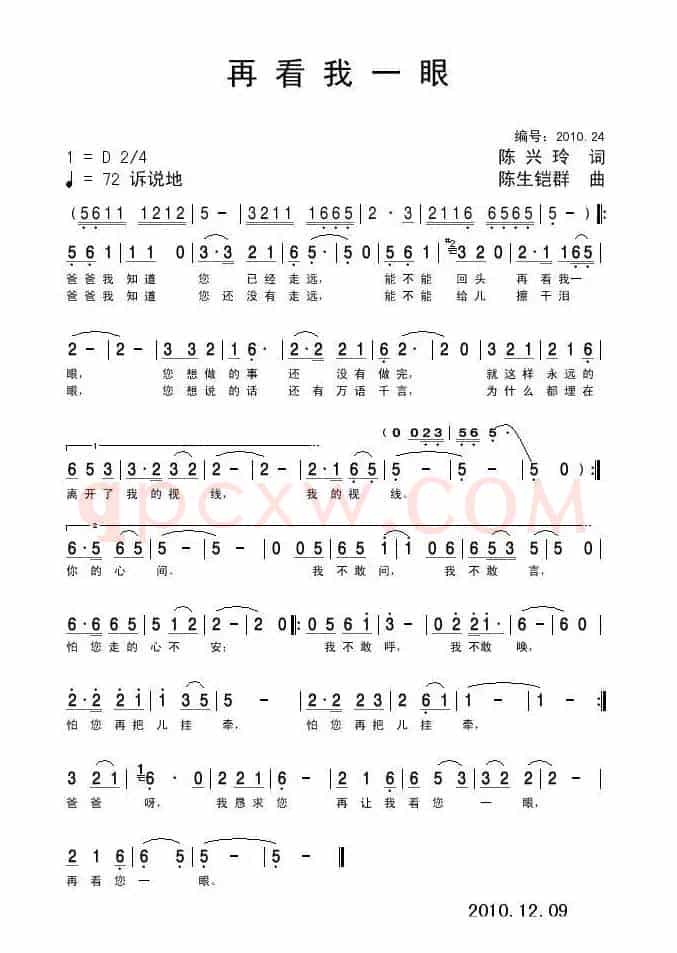 再看我一眼
编号：2010.24
1 = D 2/4 陈兴玲 词
♩ = 72 诉说地 陈生铠群 曲
( 5611 1212 | 5 - | 3211 1665 | 2 · 3 | 2116 6565 | 5 - ) ‖:
5 6 1 | 1 1 0 | 3 · 3 2 1 | 6 5 · | 5 0 | 5 6 1 | #2 3 2 0 | 2 · 1 1 6 5 |
爸爸我 知道 您 已经 走远， 能不能 回头 再看我一
爸爸我 知道 您还没有 走远， 能不能 给儿 擦干泪
2 - | 2 - | 3 3 3 2 | 1 6 · | 2 · 2 2 1 | 6 2 · | 2 0 | 3 2 1 | 2 1 6 |
眼， 您想做的事 还 没有做完， 就这样永远的
眼， 您想说的话 还有万语千言， 为什么都埋在
( 0 023 | 56 5 ·
1
6 5 3 | 3 · 2 3 2 | 2 - | 2 - | 3 · 1 6 5 | 5 - | 5 - | 5 0 ) :‖
离开了我的视线， 我的视线。
qpcxw.COM
2
6 · 5 6 5 | 5 - | 5 - | 0 0 5 | 6 5 i | i 0 6 | 6 5 3 | 5 0 5 |
你的心间。 我不敢问， 我不敢言，
6 · 6 6 5 | 5 1 2 | 2 - | 2 0 ‖: 0 5 6 i | 3 - | 0 2 2 i | 6 - | 6 0 |
怕您走的心不安； 我不敢呼， 我不敢唤，
2 · 2 2 i | i 3 5 | 5 - | 2 · 2 2 3 | 2 6 1 | 1 - | 1 - :‖
怕您再把儿挂牵， 怕您再把儿挂牵，
3 2 1 | 1 6 · 0 | 2 2 1 | 6 - | 2 1 6 | 6 5 3 | 3 2 | 2 - |
爸爸 呀， 我恳求您 再让我看您 一 眼，
2 1 6 | 6 5 | 5 - | 5 - ‖
再看您一 眼。
2010.12.09